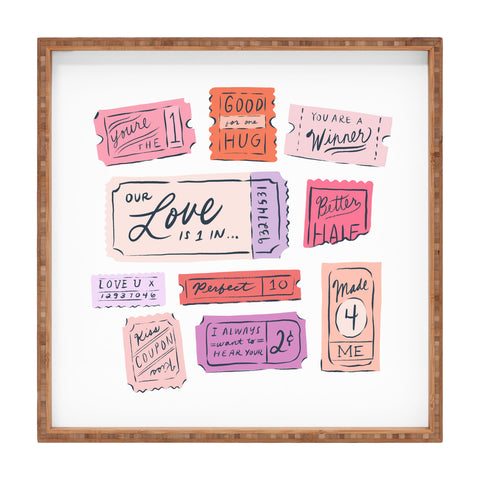 You're
THE 1
GOOD
for one
HUG
YOU ARE A
Winner
OUR
Love
IS 1 IN...
93274531
Better
HALF
LOVE U X
12937046
Perfect 10
Made
4
ME
Kiss
COUPON
Kiss
I ALWAYS
want to
HEAR YOUR
2¢